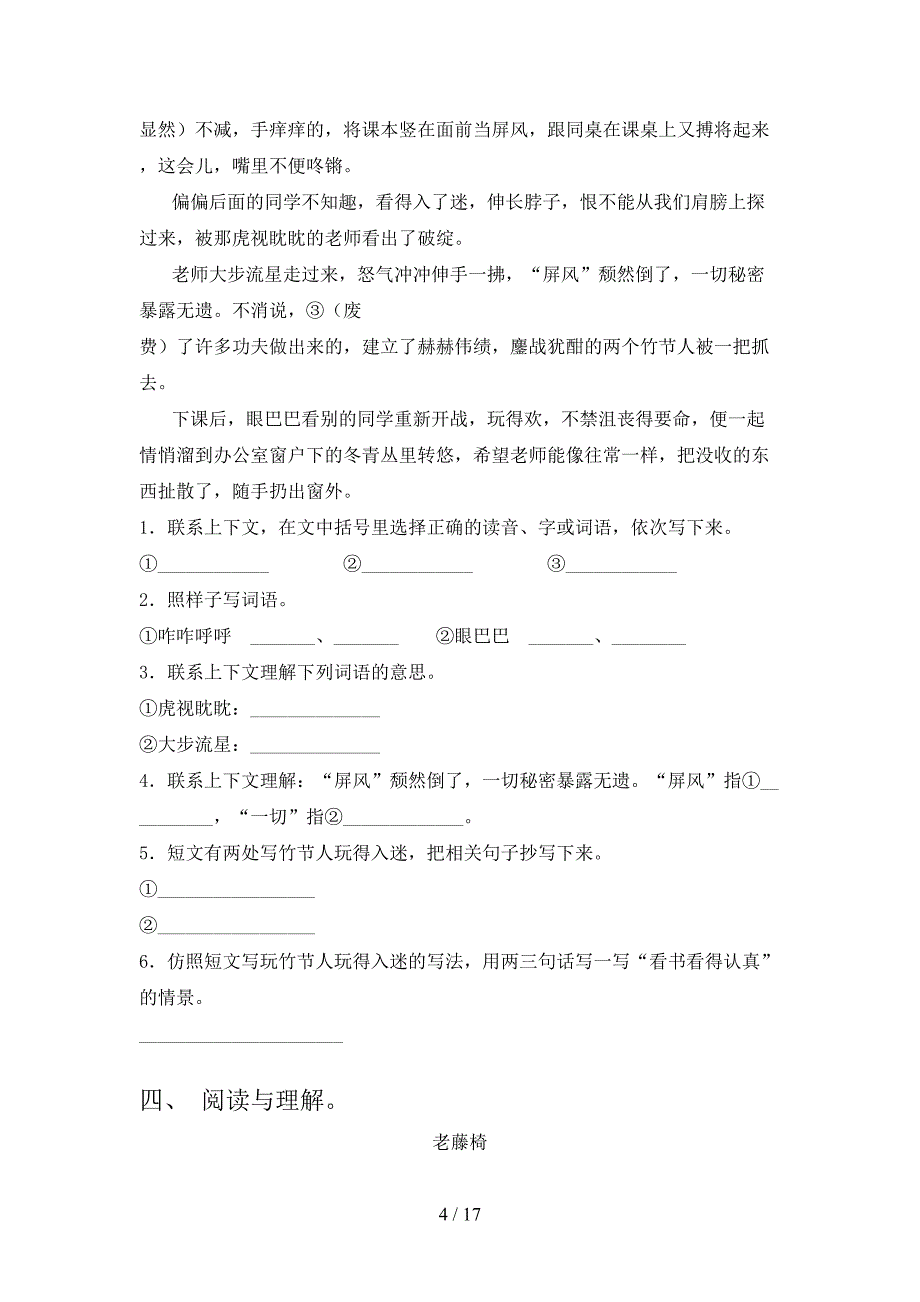 显然）不减，手痒痒的，将课本竖在面前当屏风，跟同桌在课桌上又搏将起来
，这会儿，嘴里不便咚锵。
偏偏后面的同学不知趣，看得入了迷，伸长脖子，恨不能从我们肩膀上探
过来，被那虎视眈眈的老师看出了破绽。
老师大步流星走过来，怒气冲冲伸手一拂，“屏风”颓然倒了，一切秘密
暴露无遗。不消说，③（废
费）了许多功夫做出来的，建立了赫赫伟绩，鏖战犹酣的两个竹节人被一把抓
去。
下课后，眼巴巴看别的同学重新开战，玩得欢，不禁沮丧得要命，便一起
悄悄溜到办公室窗户下的冬青丛里转悠，希望老师能像往常一样，把没收的东
西扯散了，随手扔出窗外。
1．联系上下文，在文中括号里选择正确的读音、字或词语，依次写下来。
①____________ ②____________ ③____________
2．照样子写词语。
①咋咋呼呼 _______、_______ ②眼巴巴 _______、________
3．联系上下文理解下列词语的意思。
①虎视眈眈：______________
②大步流星：______________
4．联系上下文理解：“屏风”颓然倒了，一切秘密暴露无遗。“屏风”指①__
________，“一切”指②_____________。
5．短文有两处写竹节人玩得入迷，把相关句子抄写下来。
①_________________
②_________________
6．仿照短文写玩竹节人玩得入迷的写法，用两三句话写一写“看书看得认真”
的情景。
______________________
四、 阅读与理解。
老藤椅
4 / 17